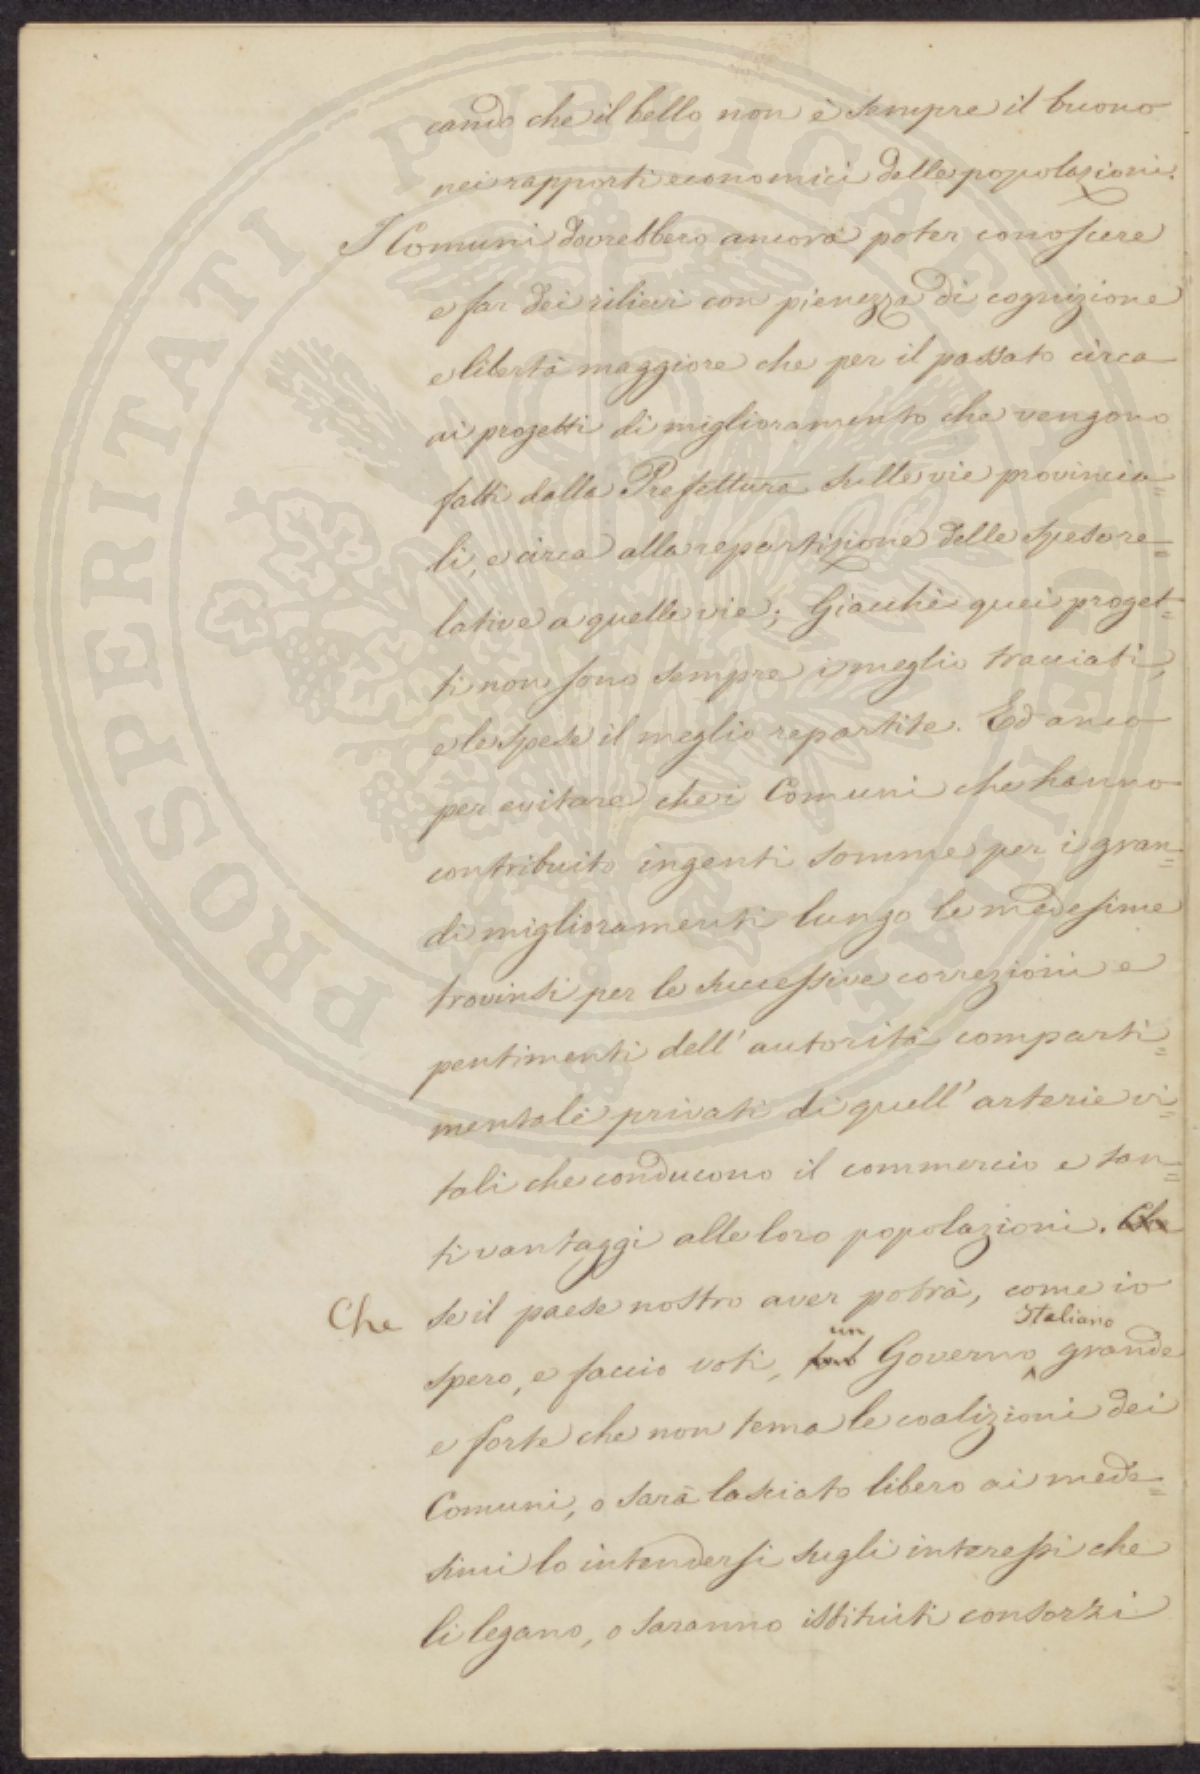 cando che il bello non è sempre il buono
nei rapporti economici delle popolazioni.
I Comuni dovrebbero ancora poter conoscere
e far dei rilievi con pienezza di cognizione
e libertà maggiore che per il passato circa
ai progetti di miglioramento che vengono
fatti dalla Prefettura sulle vie provincia=
li, e circa alla repartizione delle spese re=
lative a quelle vie; Giacchè quei proget=
ti non sono sempre i meglio tracciati,
e le spese il meglio repartite. Ed anco
per evitare che i Comuni che hanno
contribuito ingenti somme per i gran=
di miglioramenti lungo le medesime
trovinsi per le successive correzioni e
pentimenti dell'autorità comparti=
mentale privati di quell'arterie vi=
tali che conducono il commercio e tan=
ti vantaggi alle loro popolazioni. Che
Che se il paese nostro aver potrà, come io
spero, e faccio voti, un Governo Italiano grande
e forte che non tema le coalizioni dei
Comuni, o sarà lasciato libero ai mede=
simi lo intendersi sugli interessi che
li legano, o saranno istituiti consorzi
PROSPERITATI PVBLICAE AVGENDAE